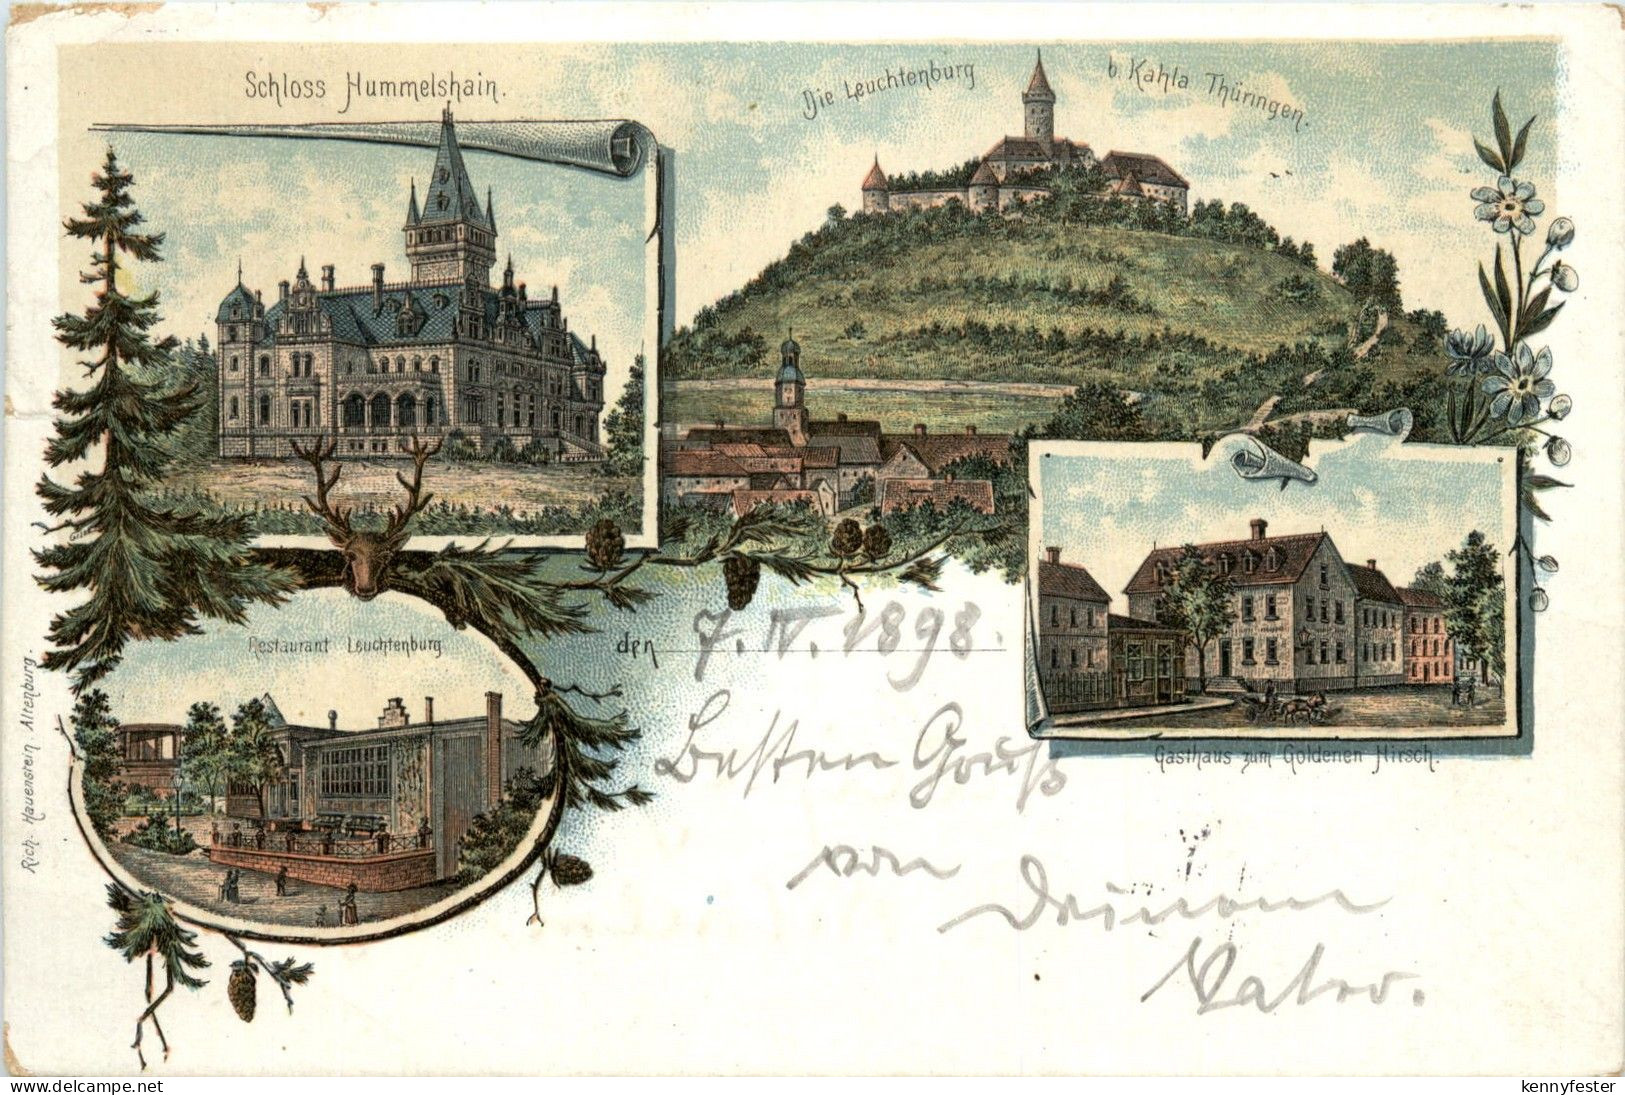 Schloss Hummelshain.
Die Leuchtenburg b. Kahla Thüringen.
Restaurant Leuchtenburg
den 7. IV. 1898.
Gasthaus zum Goldenen Hirsch.
Besten Gruß
von Deinem
Vater.
Rich. Hauenstein Altenburg.
www.delcampe.net
kennyfester